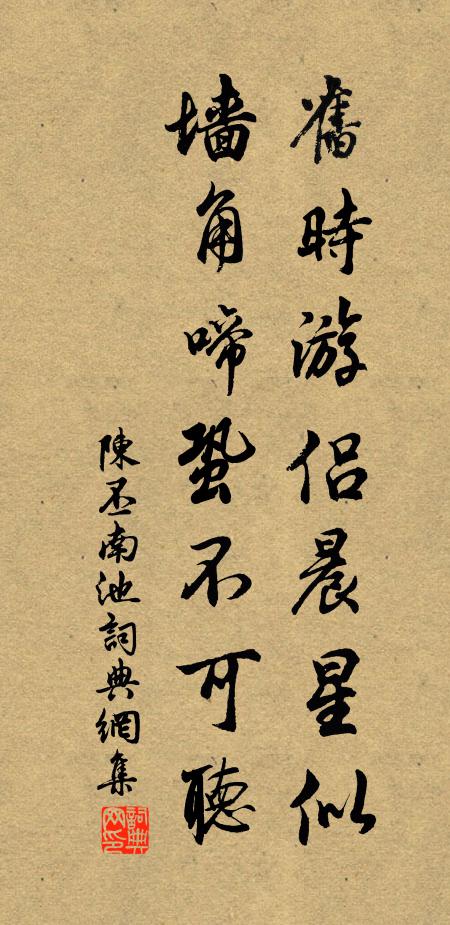 舊時游侶晨星似
墻角啼蛩不可聽
陳丕南池詞典網集
詞典網印